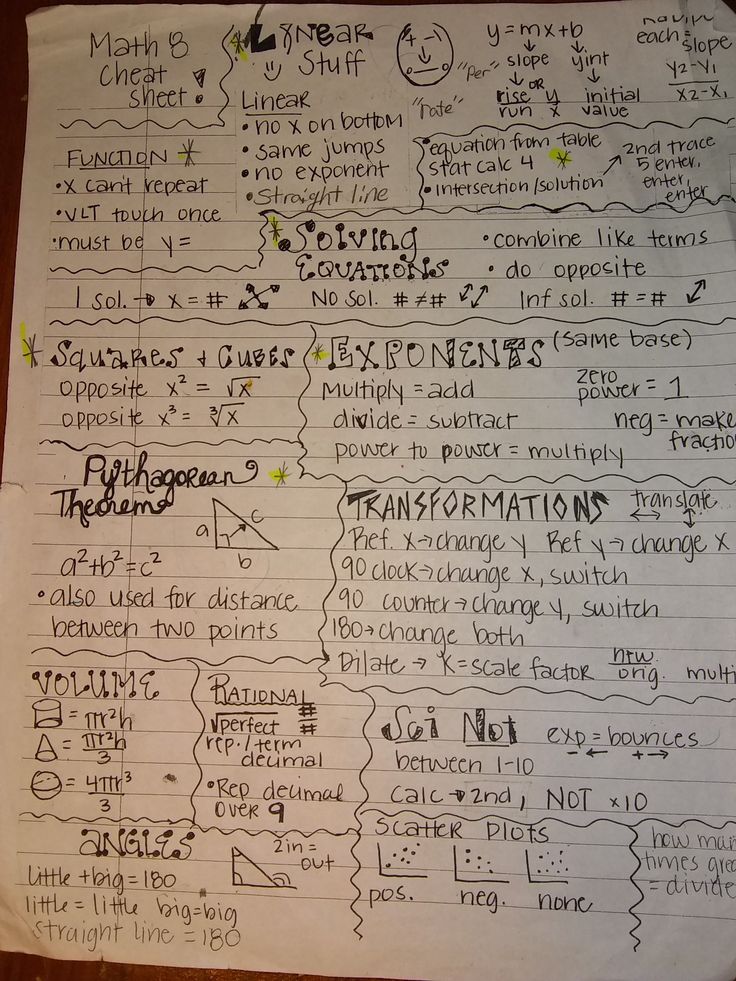 Math 8
cheat
sheet!
Linear
Stuff
Linear
• no x on bottom
• same jumps
• no exponent
• straight line
+ -
"per"
"rate"
y = mx+b
slope yint
OR
rise y initial
run x value
each = slope
y2-y1
x2-x1
FUNCTION
• x can't repeat
• VLT touch once
• must be y =
• equation from table
stat calc 4
• intersection/solution
2nd trace
5 enter,
enter,
enter
Solving
EQUATIONS
• combine like terms
• do opposite
1 sol. → x = #
NO Sol. # ≠ #
Inf sol. # = #
Squares + Cubes
opposite x² = √x
opposite x³ = ∛x
EXPONENTS (same base)
multiply = add
divide = subtract
power to power = multiply
zero
power = 1
neg = make
Pythagorean
Theorem
a
c
b
a²+b²=c²
• also used for distance
between two points
TRANSFORMATIONS translate
Ref. x→change y Ref y→change x
90 clock→change x, switch
90 counter→change y, switch
180→change both
Dilate → K=scale factor new
orig.
VOLUME
= πr²h
= πr²h
3
= 4πr³
3
RATIONAL
√perfect #
#
rep./term
decimal
• Rep decimal
over 9
Sci Not exp = bounces
- ← + →
between 1-10
calc → 2nd, NOT x10
ANGLES
little + big = 180
little = little big = big
straight line = 180
2 in =
out
Scatter Plots
pos. neg. none
how
times
= divide